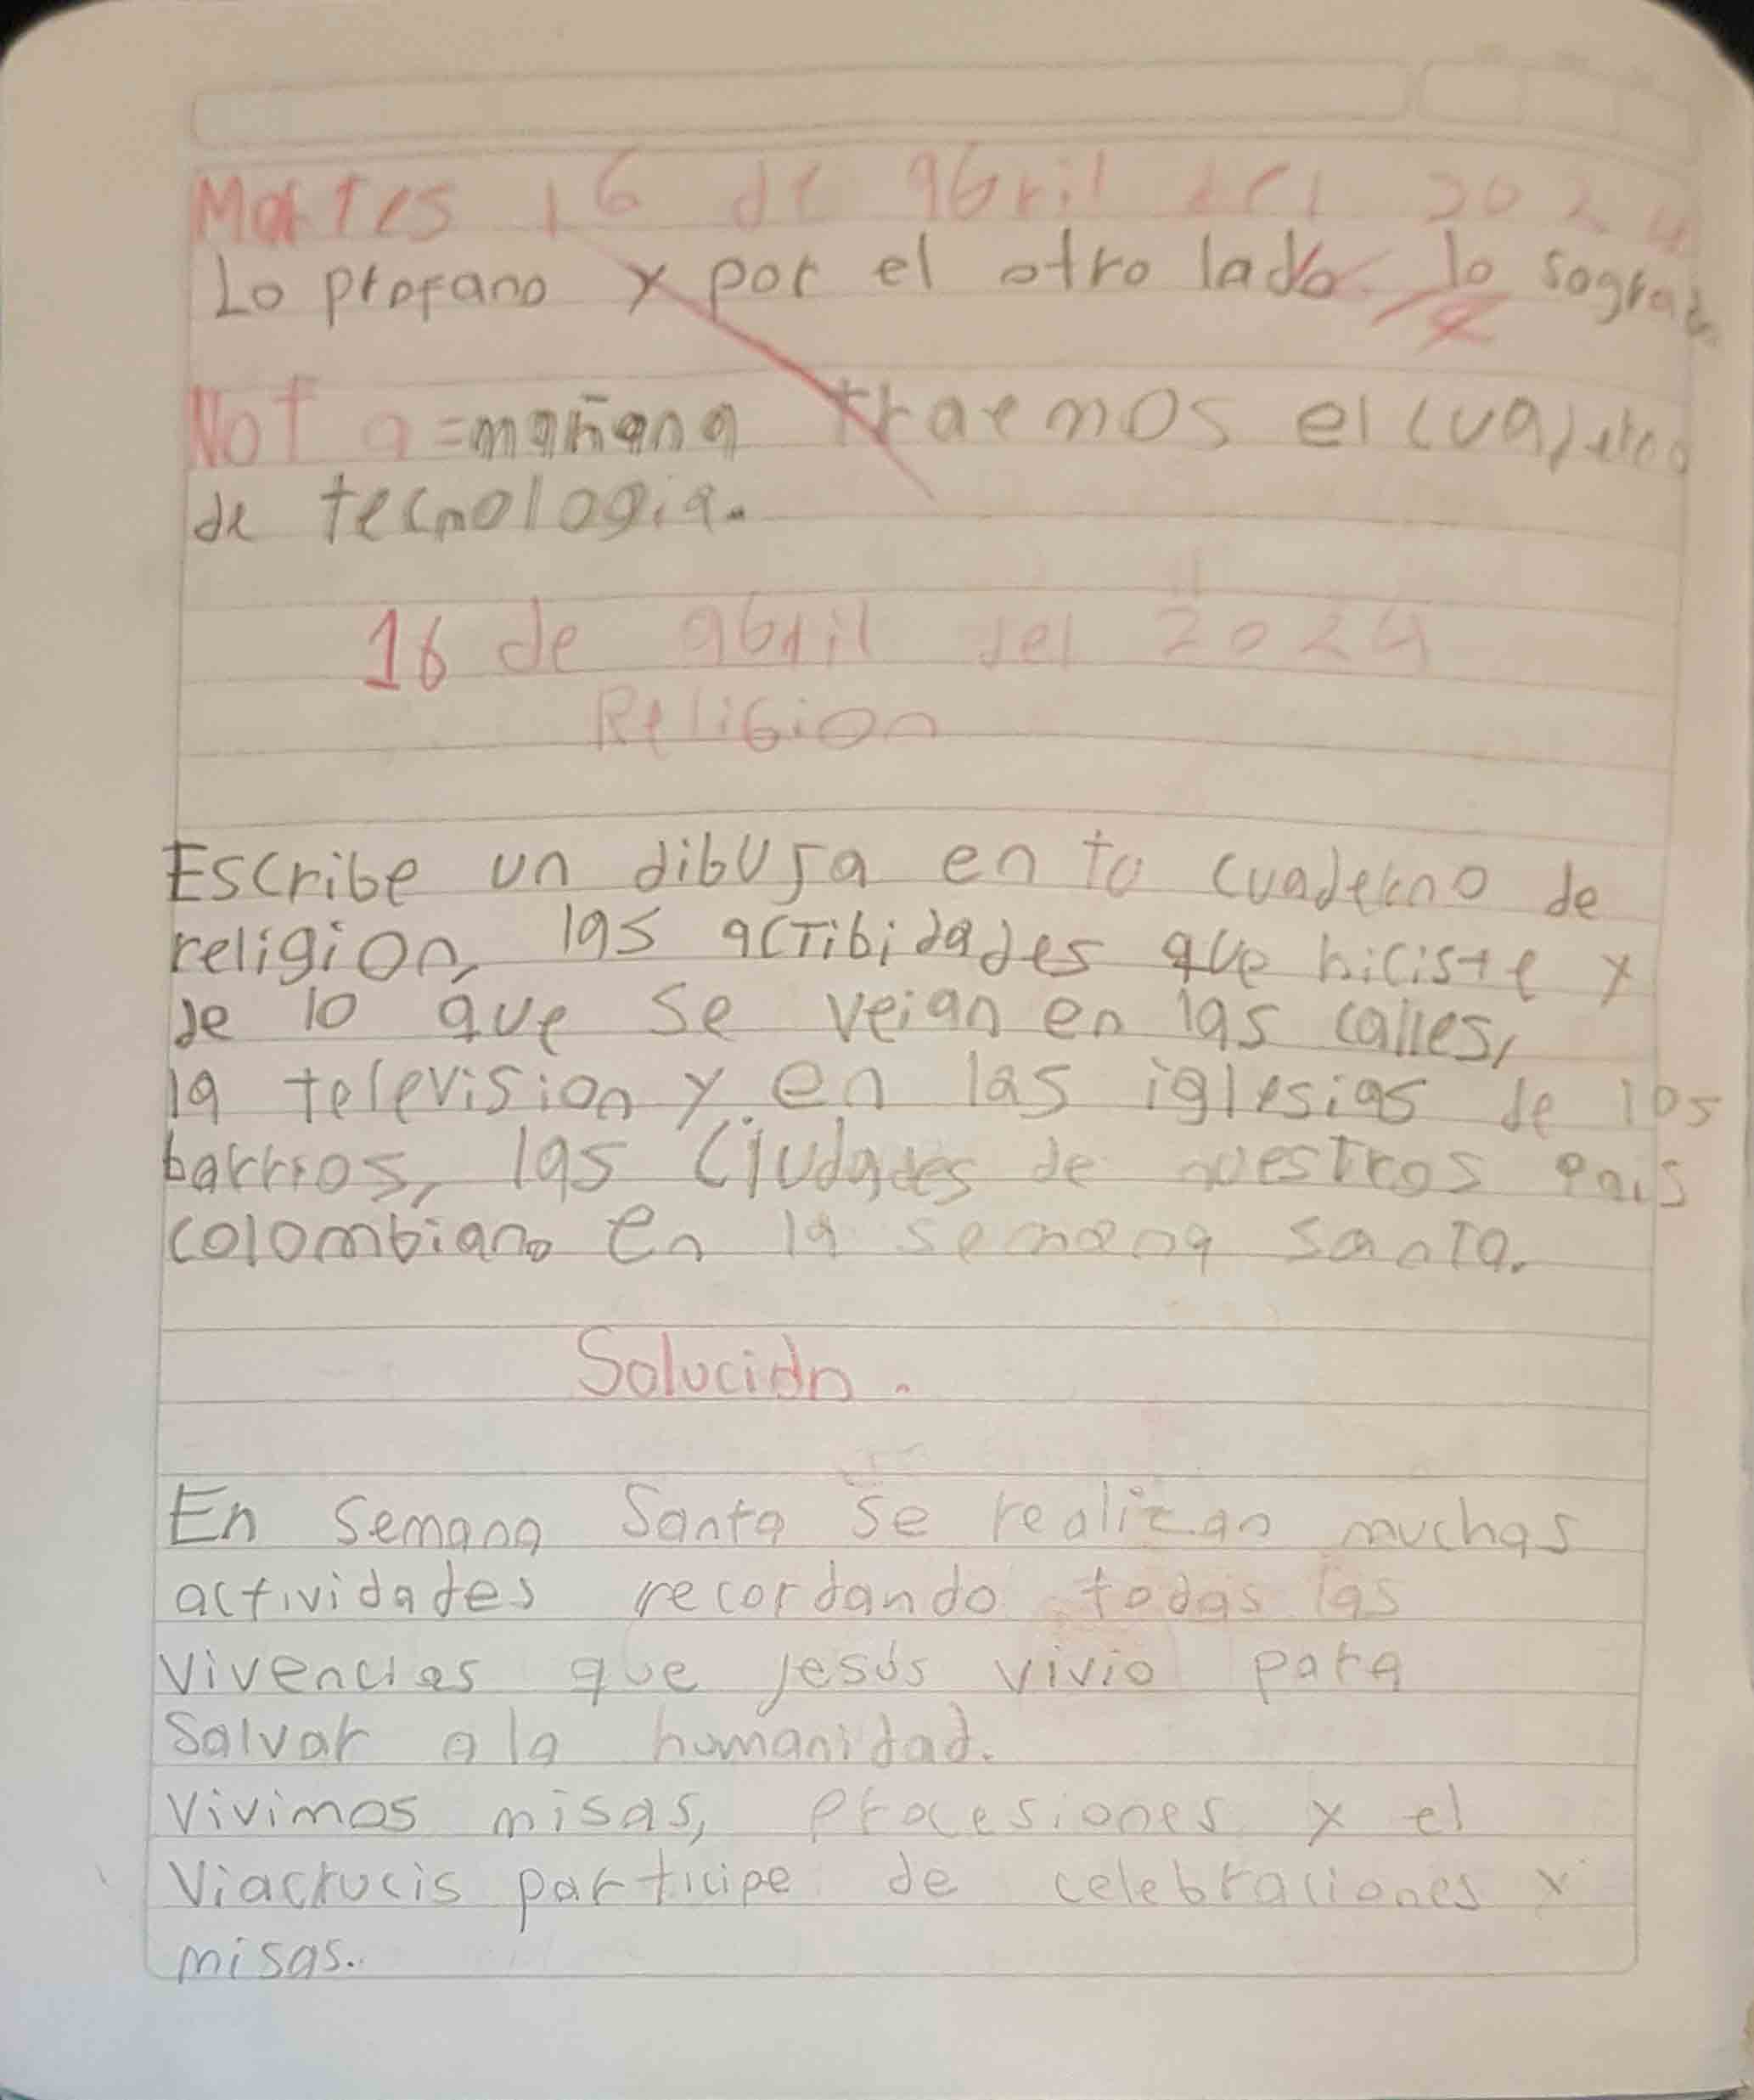 Martes 16 de abril del 2024
Lo profano y por el otro lado lo sograd
Nota=mañana traemos el cuaderno
de tecnologia.
16 de abril del 2024
Religion
Escribe un dibuja en tu cuaderno de
religion, las actibidades que hiciste y
de lo que se veian en las calles,
la television y en las iglesias de los
barrios, las Ciudades de nuestros pais
colombiano en la semana santa.
Solución.
En Semana Santa se realizan muchas
actividades recordando todas las
vivencias que jesús vivio para
salvar a la humanidad.
vivimos misas, procesiones y el
viacrucis participe de celebraciones y
misas.